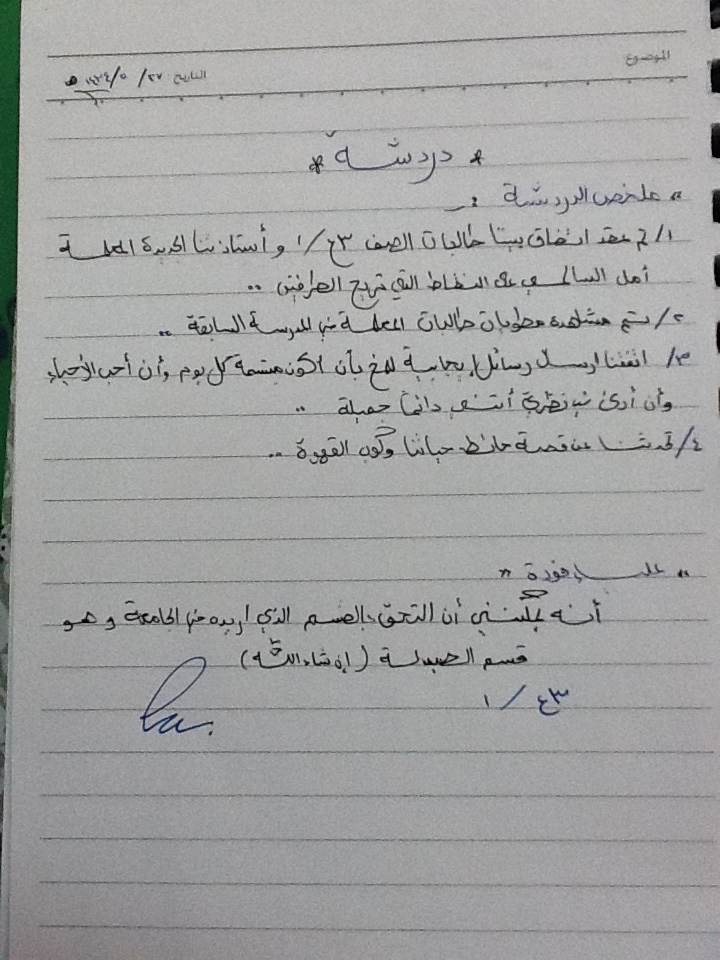 الموضوع
التاريخ ٢٧ / ٥ / ١٤٣٤ هـ
* دردشة *
" ملخص الدردشة :-
١/ تم عقد اتفاق بيننا طالبات الصف ٣ع/١ و أستاذتنا الجديدة المعلمة
أمل السالمي على النقاط التي تريح الطرفين ..
٢/ يتم مشاهدة مطويات طالبات المعلمة في المدرسة السابقة ..
٣/ اتفقنا ارسال رسائل إيجابية للمخ بأن أكون مبتسمة كل يوم وأن أحب الأحياء
وأن أرى في نظري أنني دائماً جميلة ..
٤/ تحدثنا عن قصة حائط حياتنا وكوب القهوة ..
" علياء فودة "
أنه يمكنني أن التحق بالقسم الذي اريده في الجامعة و هو
قسم الصيدلة ( إن شاء الله )
٣ع / ١